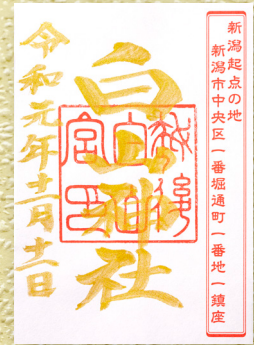 新潟起点の地
新潟市中央区一番堀通町一番地一鎮座
白山神社
越後
白山
宮印
令和元年十一月十一日